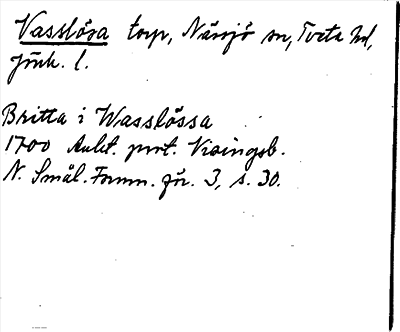 Vasslösa torp, Nässjö sn, Tveta hd,
Jönk. l.
Britta i Wasslössa
1700 Aukt. prot. Visingsb.
N. Smål. Fornm. för. 3, s. 30.